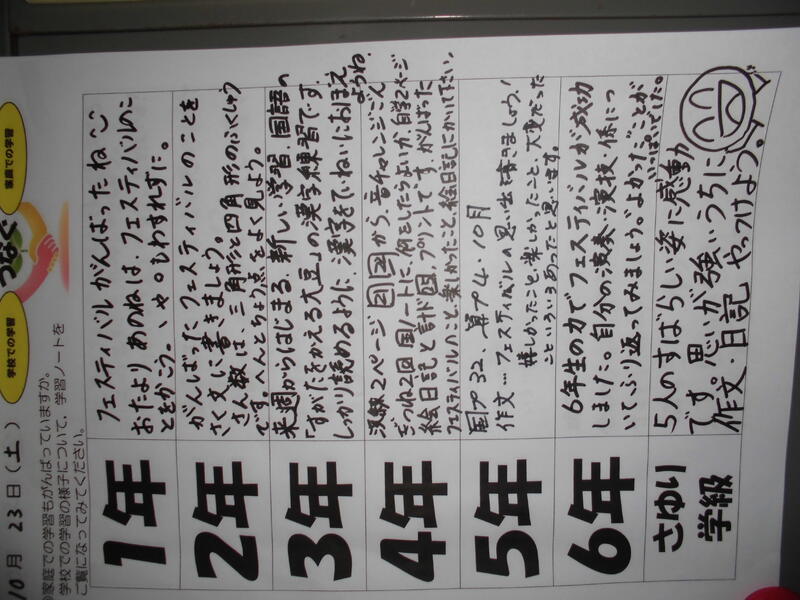 10月 23日(土)
学校での学習
つなぐ
家庭での学習
の家庭での学習もがんばっていますか。
学校での学習の様子について、学習ノートを
ご覧になってみてください。
1年
フェスティバルがんばったね
おたより あのねは、フェスティバルのこ
とをかこう。、や。もわすれずに。
2年
がんばった フェスティバルのことを
さく文に書きましょう。
さん数は、三角形と四角形のふくしゅう
です。へんとちょう点をよく見よう。
3年
来週からはじまる、新しい学習 国語の
「すがたをかえる大豆」の漢字練習です。
しっかり読めるように、漢字をていねいにおぼえ
ようね。
4年
ごつね2回 国ノートに、何をしたらよいか、自学2ページ
絵日記と計ド プリントです。がんばった
フェスティバルのこと、楽しかったこと、絵日記にかいて下さい。
5年
国プ32、算プ4・10月
作文…フェスティバルの思い出を書きましょう!
嬉しかったこと、楽しかったこと、大変だった
こといろいろあったと思います。
6年
6年生の力でフェスティバルが成功
しました。自分の演奏・演技・係につ
いてふり返ってみましょう。よかったことが
いっぱいでした。
さゆり
学級
5人のすばらしい姿に感動
です。思いが強いうちに
作文・日記 やっつけよう。